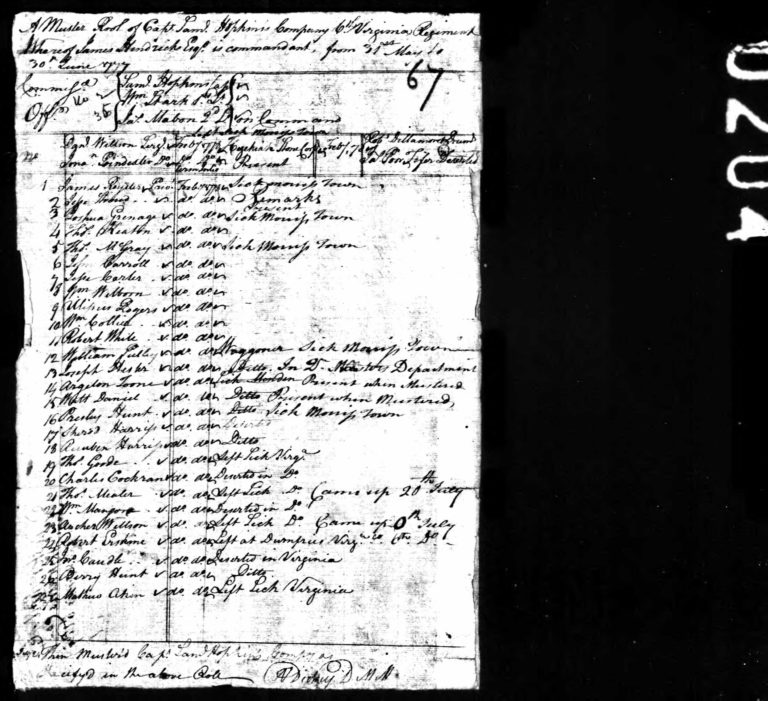 A Muster Roll of Capt. Saml. Hopkins Company 6th Virginia Regiment
Whereof James Hendricks Esqr. is commandant, from 31st May to
30th June 1777
67
0204
Commissd. Saml. Hopkins Capt.
Officrs. Wm. Stark
Mabon 2d Lt. On Command
Sick Morriss Town
William Serjt. Feb. 1777
Present Deserted
1 James Privt. Feb. Sick Morriss Town
2 Jesse do. do. Remarks
Present
3 Joshua Grenage do. do. Sick Morriss Town
4 Thos. do. do.
5 Thos. McGray do. do. Sick Morriss Town
6 Carroll do. do.
7 Jesse Carter do. do.
8 Wm. Wilborn do. do.
9 Ulisius Rogers do. do.
10 Wm. Collier do. do.
11 Robert White do. do.
12 William do. do. Waggoner Sick Morriss Town
13 Joseph Hester do. do. Ditto In Qr. Masters Department
14 Toone do. do. Sick Present when Mustered
15 Matt Daniel do. Ditto Present when Mustered
16 Presley Hunt do. do. Ditto Sick Morriss Town
17 Sherd Harriss do. do. Deserted
18 Reuben Harriss do. do. Ditto
19 Thos. Goode do. do. Left Sick Virga.
20 Charles Cochran do. do. Deserted in Do.
21 Thos. Mealer do. do. Left Sick Do. Came up 20th July
22 Wm. Mangom do. do. Deserted in Do.
23 Archer Willson do. Left Sick Do. Came up 0th July
24 Robert Erskine do. do. Left at Dumfries Virga. 6th Do.
25 Jno. Caudle do. do. Deserted in Virginia
26 Berry Hunt do. do. Ditto
Mathius Akin do. do. Left Sick Virginia
Then Musterd Capt. Saml. Hopkins Company
as Specifyd in the above Roll
D M M